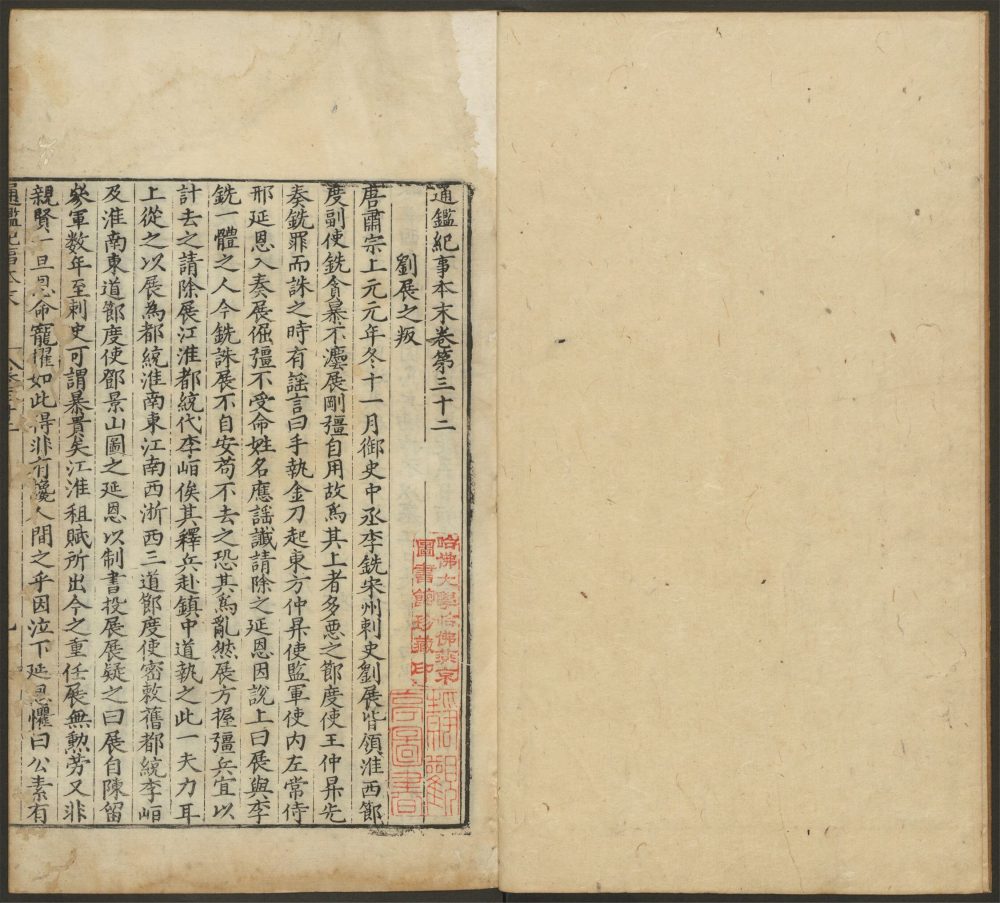 通鑑紀事本末卷第三十二
劉展之叛
唐肅宗上元元年冬十一月御史中丞李銑宋州刺史劉展皆領淮西節
度副使銑貪暴不灋展剛彊自用故爲其上者多惡之節度使王仲昇先
奏銑罪而誅之時有謡言曰手執金刀起東方仲昇使監軍使内左常侍
邢延恩入奏展倔彊不受命姓名應謡讖請除之延恩因說上曰展與李
銑一體之人今銑誅展不自安苟不去之恐其爲亂然展方握彊兵宜以
計去之請除展江淮都統代李峘俟其釋兵赴鎮中道執之此一夫力耳
上從之以展爲都統淮南東江南西浙西三道節度使密敕舊都統李峘
及淮南東道節度使鄧景山圖之延恩以制書授展展疑之曰展自陳留
叅軍數年至刺史可謂暴貴矣江淮租賦所出今之重任展無勲勞又非
親賢一旦恩命寵擢如此得非有讒人間之乎因泣下延恩懼曰公素有
通鑑紀事本末
哈佛大學哈佛燕京
圖書館珍藏印
圖書